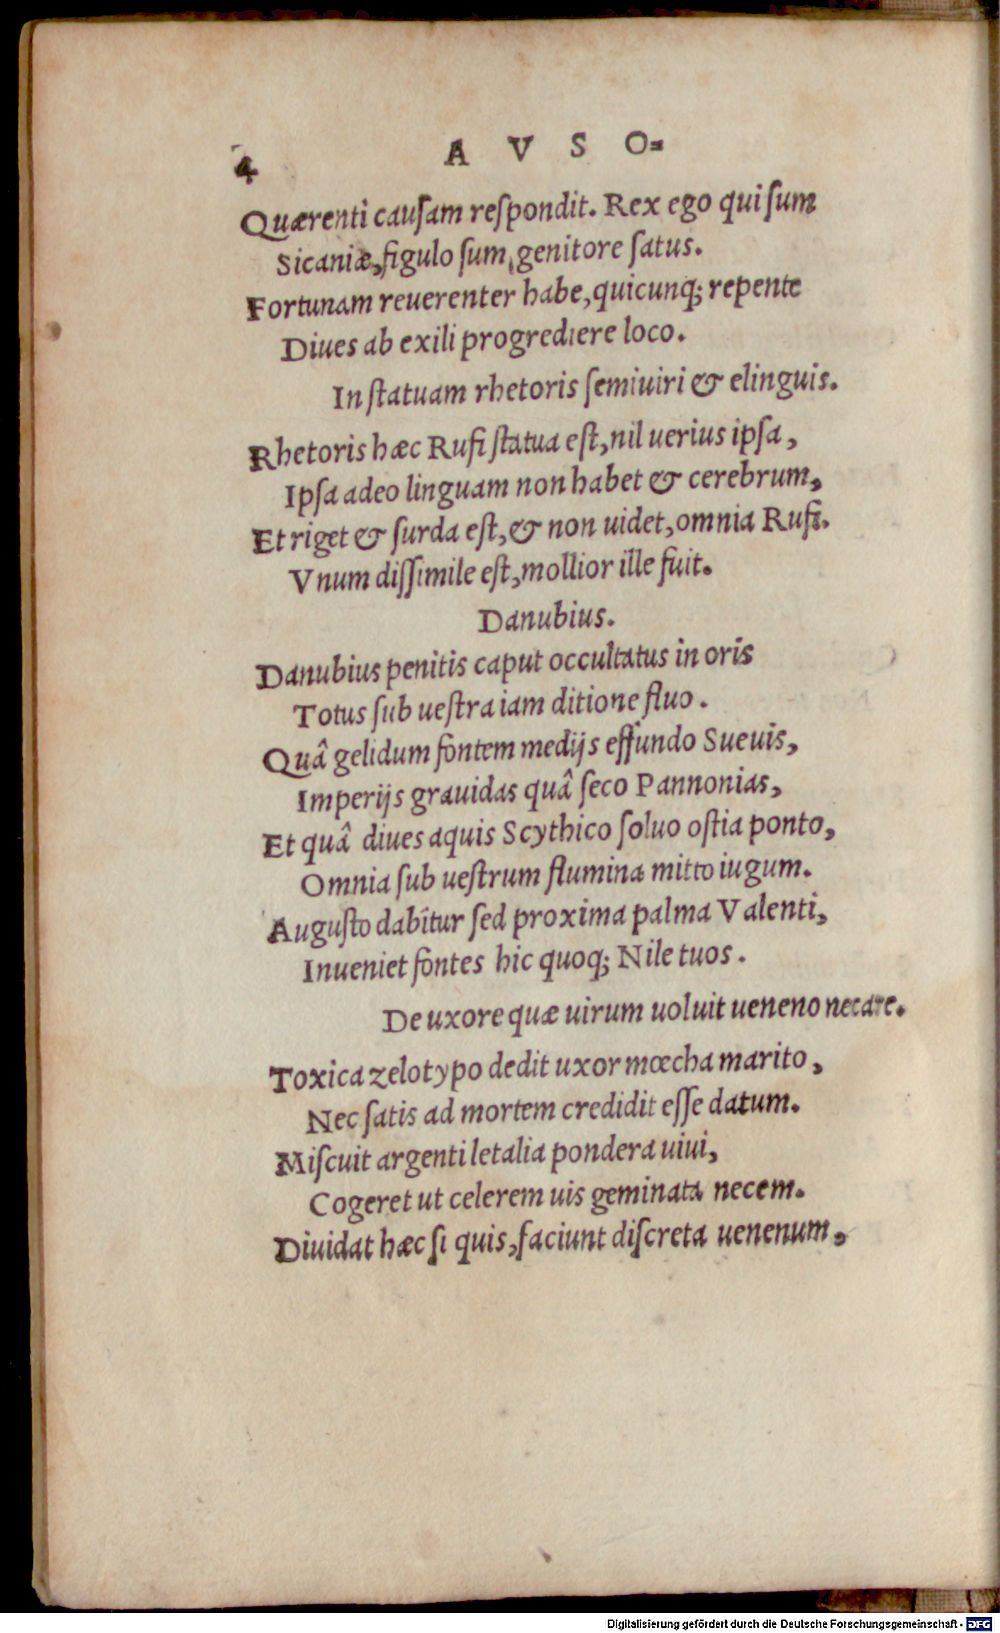 4 A V S O=
Quærenti cauſam reſpondit. Rex ego qui ſum
Sicaniæ, figulo ſum, genitore ſatus.
Fortunam reuerenter habe, quicunq; repente
Diues ab exili progrediere loco.
In ſtatuam rhetoris ſemiuiri & elinguis.
Rhetoris hæc Rufi ſtatua eſt, nil uerius ipſa,
Ipſa adeo linguam non habet & cerebrum,
Et riget & ſurda eſt, & non uidet, omnia Rufi.
Vnum diſſimile eſt, mollior ille fuit.
Danubius.
Danubius penitis caput occultatus in oris
Totus ſub ueſtra iam ditione fluo.
Quâ gelidum fontem medijs effundo Sueuis,
Imperijs grauidas quâ ſeco Pannonias,
Et quâ diues aquis Scythico ſoluo oſtia ponto,
Omnia ſub ueſtrum flumina mitto iugum.
Auguſto dabitur ſed proxima palma Valenti,
Inueniet fontes hic quoq; Nile tuos.
De uxore quæ uirum uoluit ueneno necare.
Toxica zelotypo dedit uxor mœcha marito,
Nec ſatis ad mortem credidit eſſe datum.
Miſcuit argenti letalia pondera uiui,
Cogeret ut celerem uis geminata necem.
Diuidat hæc ſi quis, faciunt diſcreta uenenum,
Digitalisierung gefördert durch die Deutsche Forschungsgemeinschaft - DFG